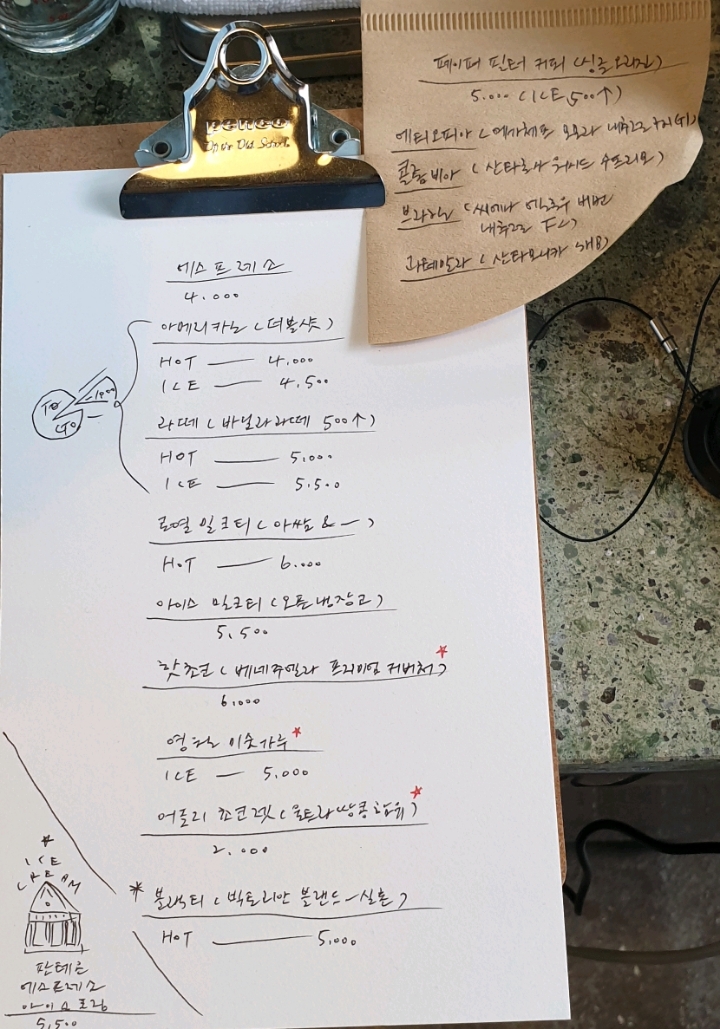 penco
페이퍼 필터 커피 (싱글 오리진)
5.000 (ICE 500↑)
에티오피아 (예가체프 모모라 내추럴
콜롬비아 (산타로사 워시드 수프리모)
브라질 (씨에나 옐로우 버번
내추럴
과테말라 (산타모니카
에스프레소
4.000
아메리카노 (더블샷)
HOT — 4.000
ICE — 4.500
TO
GO
-1000
라떼 (바닐라라떼 500↑)
HOT — 5.000
ICE — 5.500
로열 밀크티 (아쌈 & — )
HOT — 6.000
아이스 밀크티 (오픈냉장고)
5.500
핫쵸코 (베네주엘라 프리미엄 커버춰)*
6.000
영월 미숫가루*
ICE — 5.000
어글리 쵸코렛 (울트라땅콩함유)*
2.000
* 블랙티 (빅토리안 블랜드 - 실론)
HOT — 5.000
*
ICE
CREAM
판테온
에스프레소
아이스크림
5.500